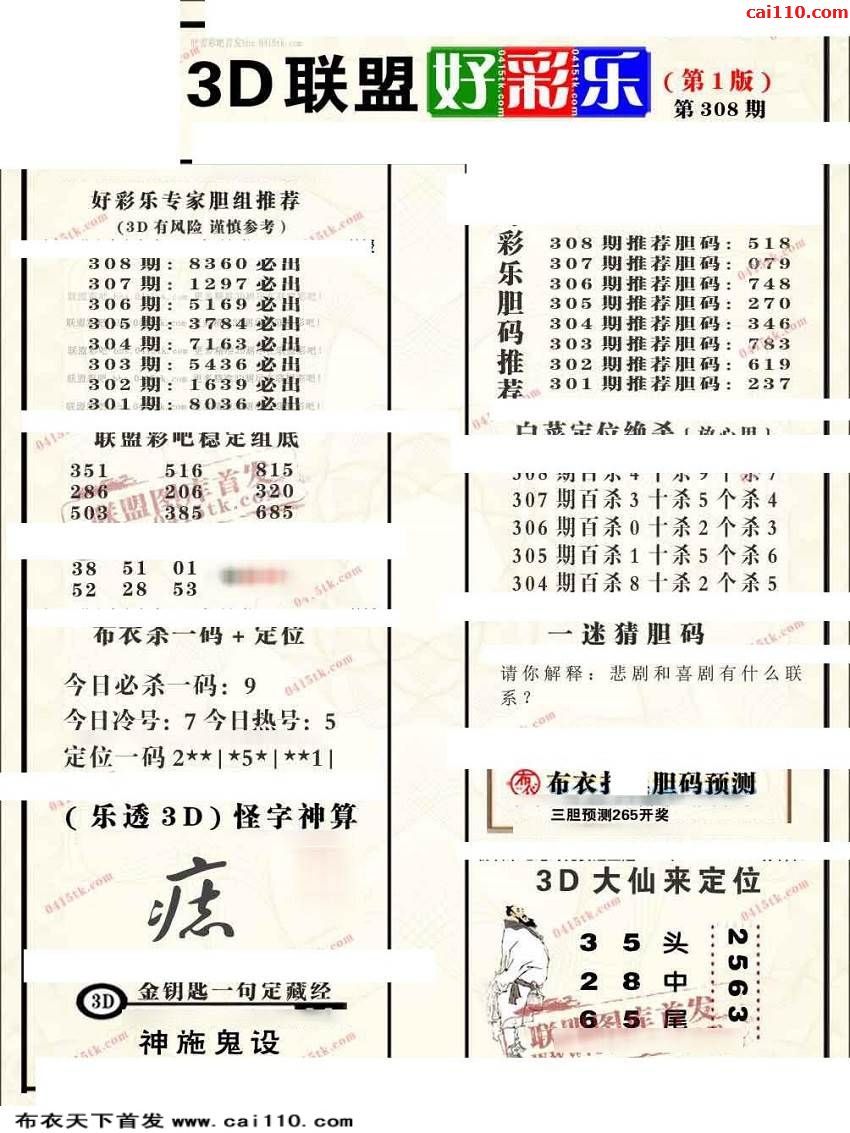 cai110.com
3D联盟好彩乐(第1版)
第308期
好彩乐专家胆组推荐
(3D有风险 谨慎参考)
308期: 8360必出
307期: 1297必出
306期: 5169必出
305期: 3784必出
304期: 7163必出
303期: 5436必出
302期: 1639必出
301期: 8036必出
联盟彩吧稳定组底
351 516 815
286 206 320
503 385 685
38 51 01
52 28 53
布衣杀一码+定位
今日必杀一码: 9
今日冷号: 7 今日热号: 5
定位一码 2**|*5*|**1|
(乐透3D)怪字神算
3D 金钥匙一句定藏经
神施鬼设
彩乐胆码推荐
308期推荐胆码: 518
307期推荐胆码: 079
306期推荐胆码: 748
305期推荐胆码: 270
304期推荐胆码: 346
303期推荐胆码: 783
302期推荐胆码: 619
301期推荐胆码: 237
白菜定位绝杀(放心用)
308期百杀4十杀9个杀7
307期百杀3十杀5个杀4
306期百杀0十杀2个杀3
305期百杀1十杀5个杀6
304期百杀8十杀2个杀5
一迷猜胆码
请你解释: 悲剧和喜剧有什么联
系?
布衣 胆码预测
三胆预测265开奖
3D大仙来定位
3 5 头
2 8 中
6 5 尾
2563
联盟图库首发
0415tk.com
布衣天下首发 www.cai110.com